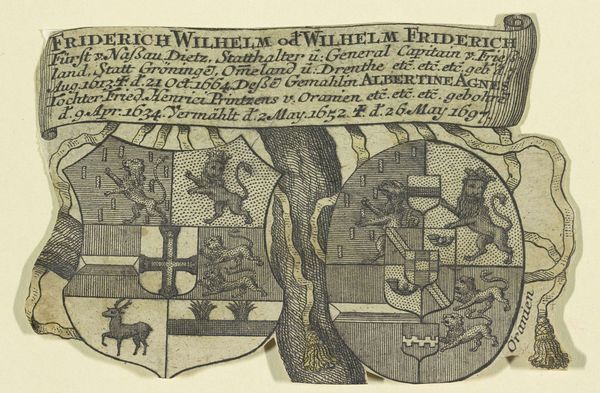 FRIDERICH WILHELM od WILHELM FRIDERICH
Fürst v. Naßau Dietz, Statthalter ü. General Capitain v. Frieß
land, Statt Gröningē, Om̄eland ü. Drenthe etc. etc. etc. geb. 7
Aug. 1613. ✝ d. 21 Oct. 1664. Deßē Gemahlin ALBERTINE AGNES
Tochter Fried. Henrici Printzens v. Oranien etc. etc. etc. gebohrē
d. 9 Apr. 1634. Vermählt d. 2 May. 1652. ✝ d. 26 May. 1697
Oranien